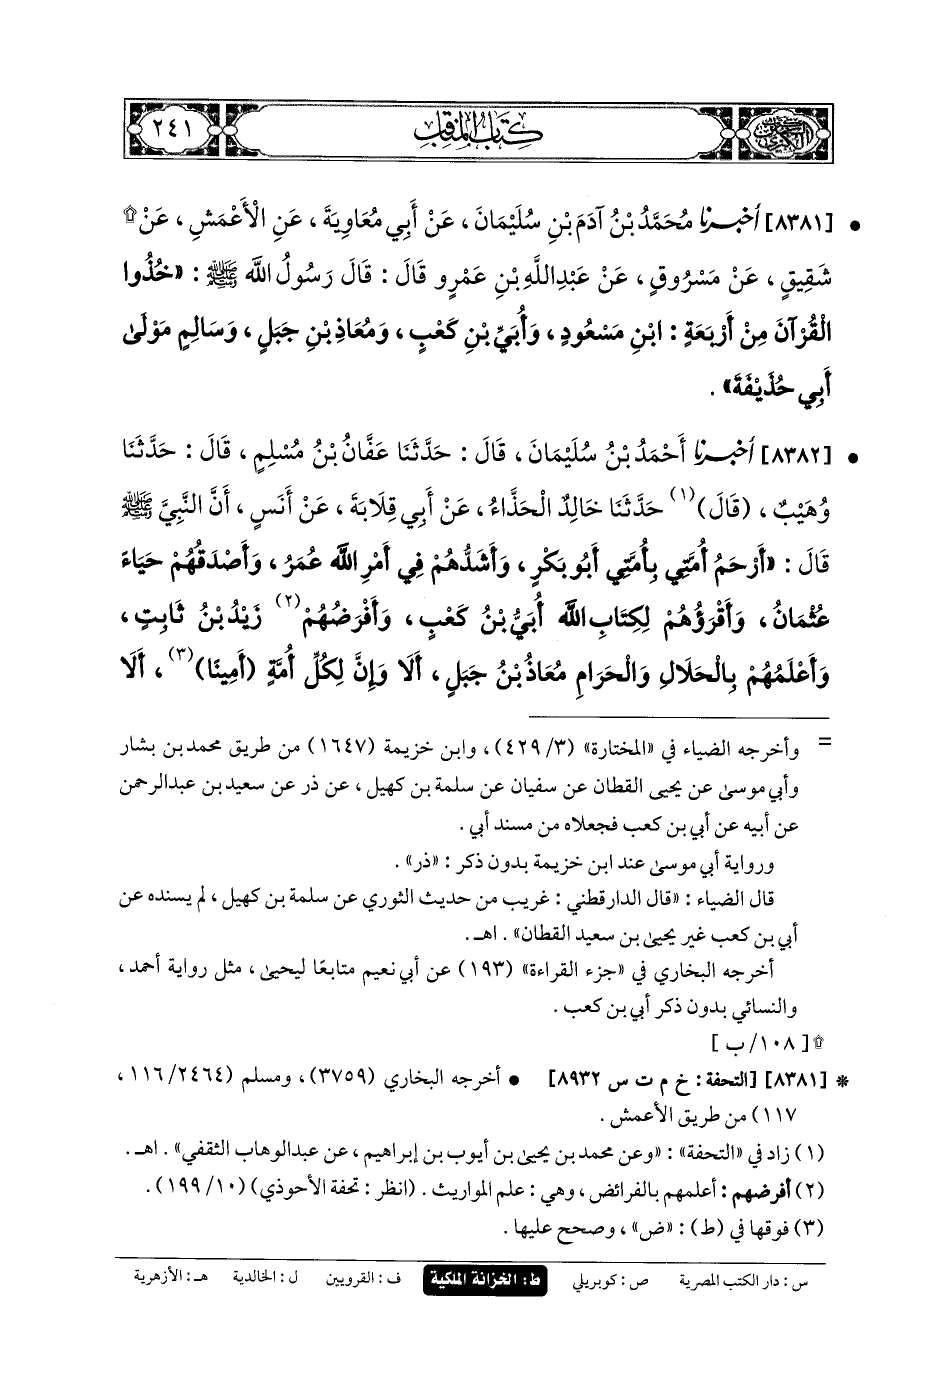 كتاب المناقب
٢٤١
• [٨٣٨١] أخبرنا مُحَمَّدُ بْنُ آدَمَ بْنِ سُلَيْمَانَ، عَنْ أَبِي مُعَاوِيَةَ، عَنِ الْأَعْمَشِ، عَنْ ۩
شَقِيقٍ، عَنْ مَسْرُوقٍ، عَنْ عَبْدِ اللَّهِ بْنِ عَمْرٍو قَالَ: قَالَ رَسُولُ اللَّهِ ﷺ: «خُذُوا
الْقُرْآنَ مِنْ أَرْبَعَةٍ: ابْنِ مَسْعُودٍ، وَأُبَيِّ بْنِ كَعْبٍ، وَمُعَاذِ بْنِ جَبَلٍ، وَسَالِمٍ مَوْلَىٰ
أَبِي حُذَيْفَةَ».
• [٨٣٨٢] أخبرنا أَحْمَدُ بْنُ سُلَيْمَانَ، قَالَ: حَدَّثَنَا عَفَّانُ بْنُ مُسْلِمٍ، قَالَ: حَدَّثَنَا
وُهَيْبٌ، (قَالَ)(١) حَدَّثَنَا خَالِدٌ الْحَذَّاءُ، عَنْ أَبِي قِلَابَةَ، عَنْ أَنَسٍ، أَنَّ النَّبِيَّ ﷺ
قَالَ: «أَرْحَمُ أُمَّتِي بِأُمَّتِي أَبُو بَكْرٍ، وَأَشَدُّهُمْ فِي أَمْرِ اللَّهِ عُمَرُ، وَأَصْدَقُهُمْ حَيَاءً
عُثْمَانُ، وَأَقْرَؤُهُمْ لِكِتَابِ اللَّهِ أُبَيُّ بْنُ كَعْبٍ، وَأَفْرَضُهُمْ(٢) زَيْدُ بْنُ ثَابِتٍ،
وَأَعْلَمُهُمْ بِالْحَلَالِ وَالْحَرَامِ مُعَاذُ بْنُ جَبَلٍ، أَلَا وَإِنَّ لِكُلِّ أُمَّةٍ (أَمِينًا)(٣)، أَلَا
= وأخرجه الضياء في «المختارة» (٣/ ٤٢٩)، وابن خزيمة (١٦٤٧) من طريق محمد بن بشار
وأبي موسىٰ عن يحيى القطان عن سفيان عن سلمة بن كهيل، عن ذر عن سعيد بن عبدالرحمن
عن أبيه عن أبي بن كعب فجعلاه من مسند أبي.
ورواية أبي موسىٰ عند ابن خزيمة بدون ذكر: «ذر».
قال الضياء: «قال الدارقطني: غريب من حديث الثوري عن سلمة بن كهيل، لم يسنده عن
أبي بن كعب غير يحيىٰ بن سعيد القطان». اهـ.
أخرجه البخاري في «جزء القراءة» (١٩٣) عن أبي نعيم متابعًا ليحيىٰ، مثل رواية أحمد،
والنسائي بدون ذكر أبي بن كعب.
۩ [١٠٨/ ب]
* [٨٣٨١] [التحفة: خ م ت س ٨٩٣٢] • أخرجه البخاري (٣٧٥٩)، ومسلم (٢٤٦٤/ ١١٦،
١١٧) من طريق الأعمش.
(١) زاد في «التحفة»: «وعن محمد بن يحيىٰ بن أيوب بن إبراهيم، عن عبدالوهاب الثقفي». اهـ.
(٢) أفرضهم: أعلمهم بالفرائض، وهي: علم المواريث. (انظر: تحفة الأحوذي) (١٠/ ١٩٩).
(٣) فوقها في (ط): «ض»، وصحح عليها.
س: دار الكتب المصرية ص: كوبريلي ط: الخزانة الملكية ف: القرويين ل: الخالدية هـ: الأزهرية